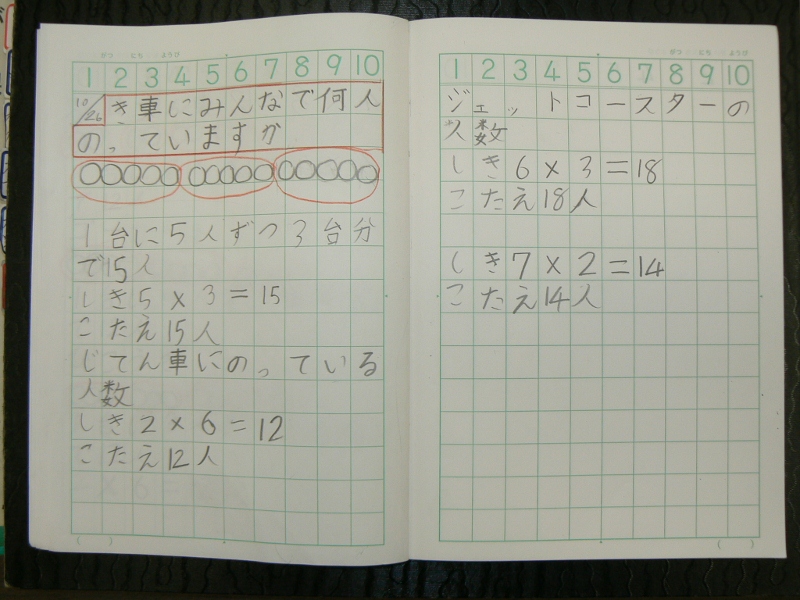 がつ にち ようび
1 2 3 4 5 6 7 8 9 10
10/26 き車にみんなで何人
のっていますか
1台に5人ずつ3台分
で15人
しき5×3=15
こたえ15人
じてん車にのっている
人数
しき2×6=12
こたえ12人
がつ にち ようび
1 2 3 4 5 6 7 8 9 10
ジェットコースターの
人数
しき6×3=18
こたえ18人
しき7×2=14
こたえ14人